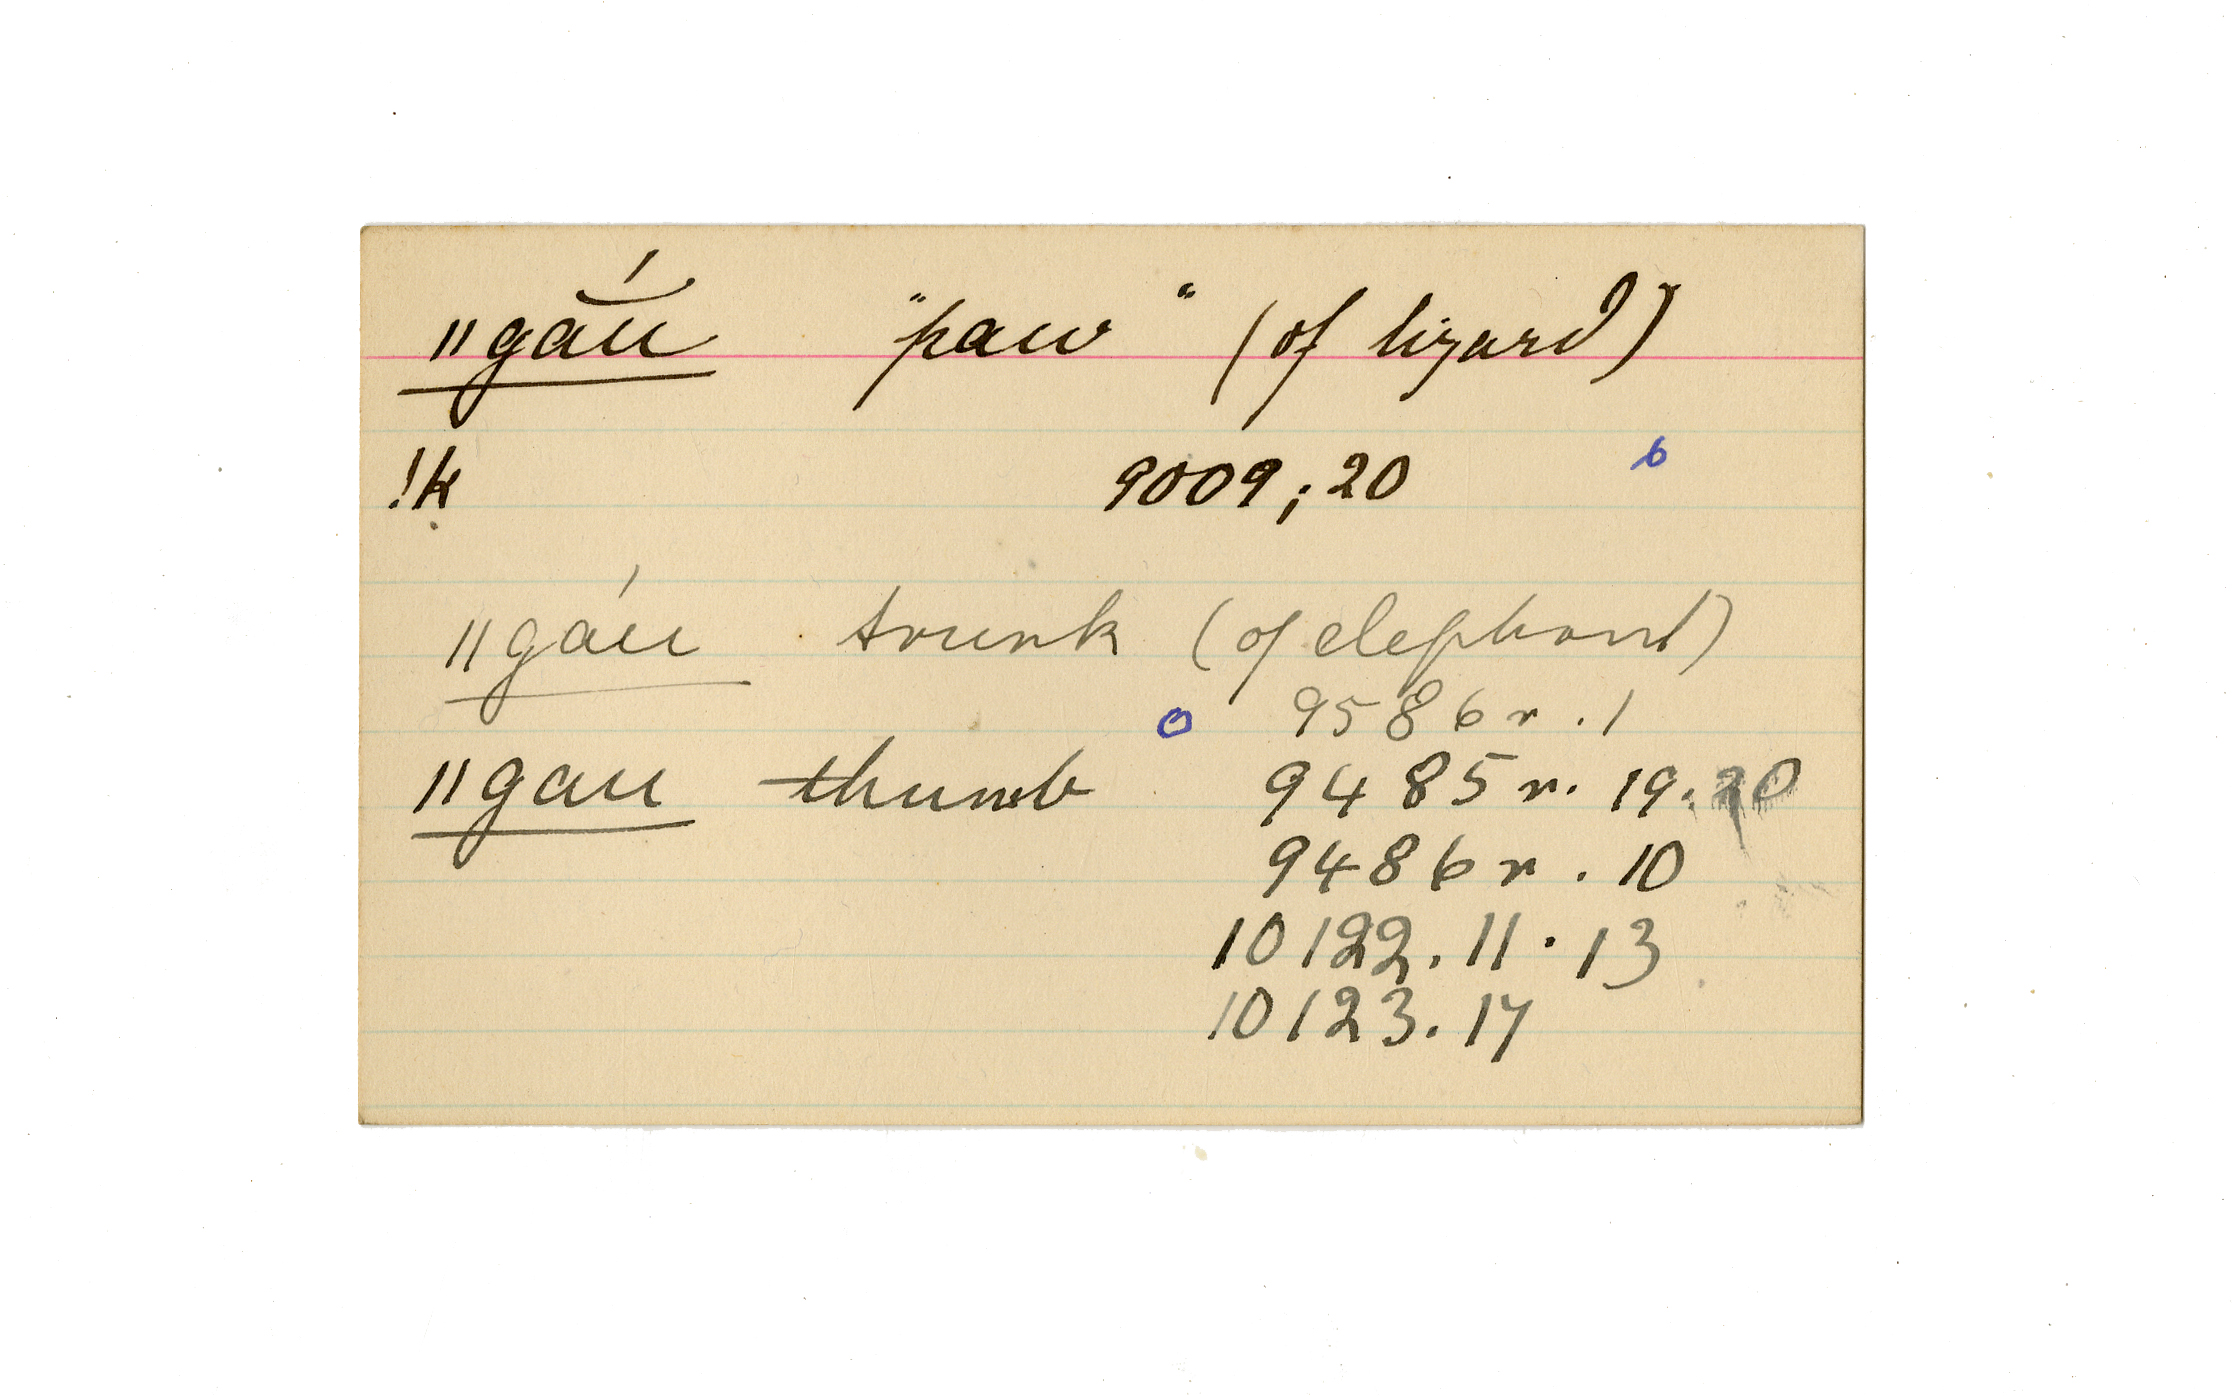 ǁgā́u "paw" (of lizard)
!k 9009; 20 b
ǁgáu trunk (of elephant)
o 9586 r. 1
ǁgau thumb 9485 r. 19. 20
9486 r. 10
10122. 11. 13
10123. 17